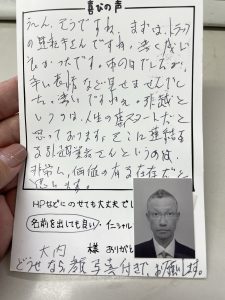 喜びの声
うーん、そうですね、まずは、トラック
の運転手さんですね。渋く感じ
良かったです。雨の日でしたが、
辛い表情など見せませんでし
た。渋いですねぇ。
というのは、人生の再スタートだと
思っております。そこに連結す
る引越業者さんというのは、
非常に、価値の有る存在だと
思います。
HPなどにのせても大丈夫でし
名前を出しても良い・イニシャル
大内 様 ありがと
どうせなら顔写真付きで、お願いします。